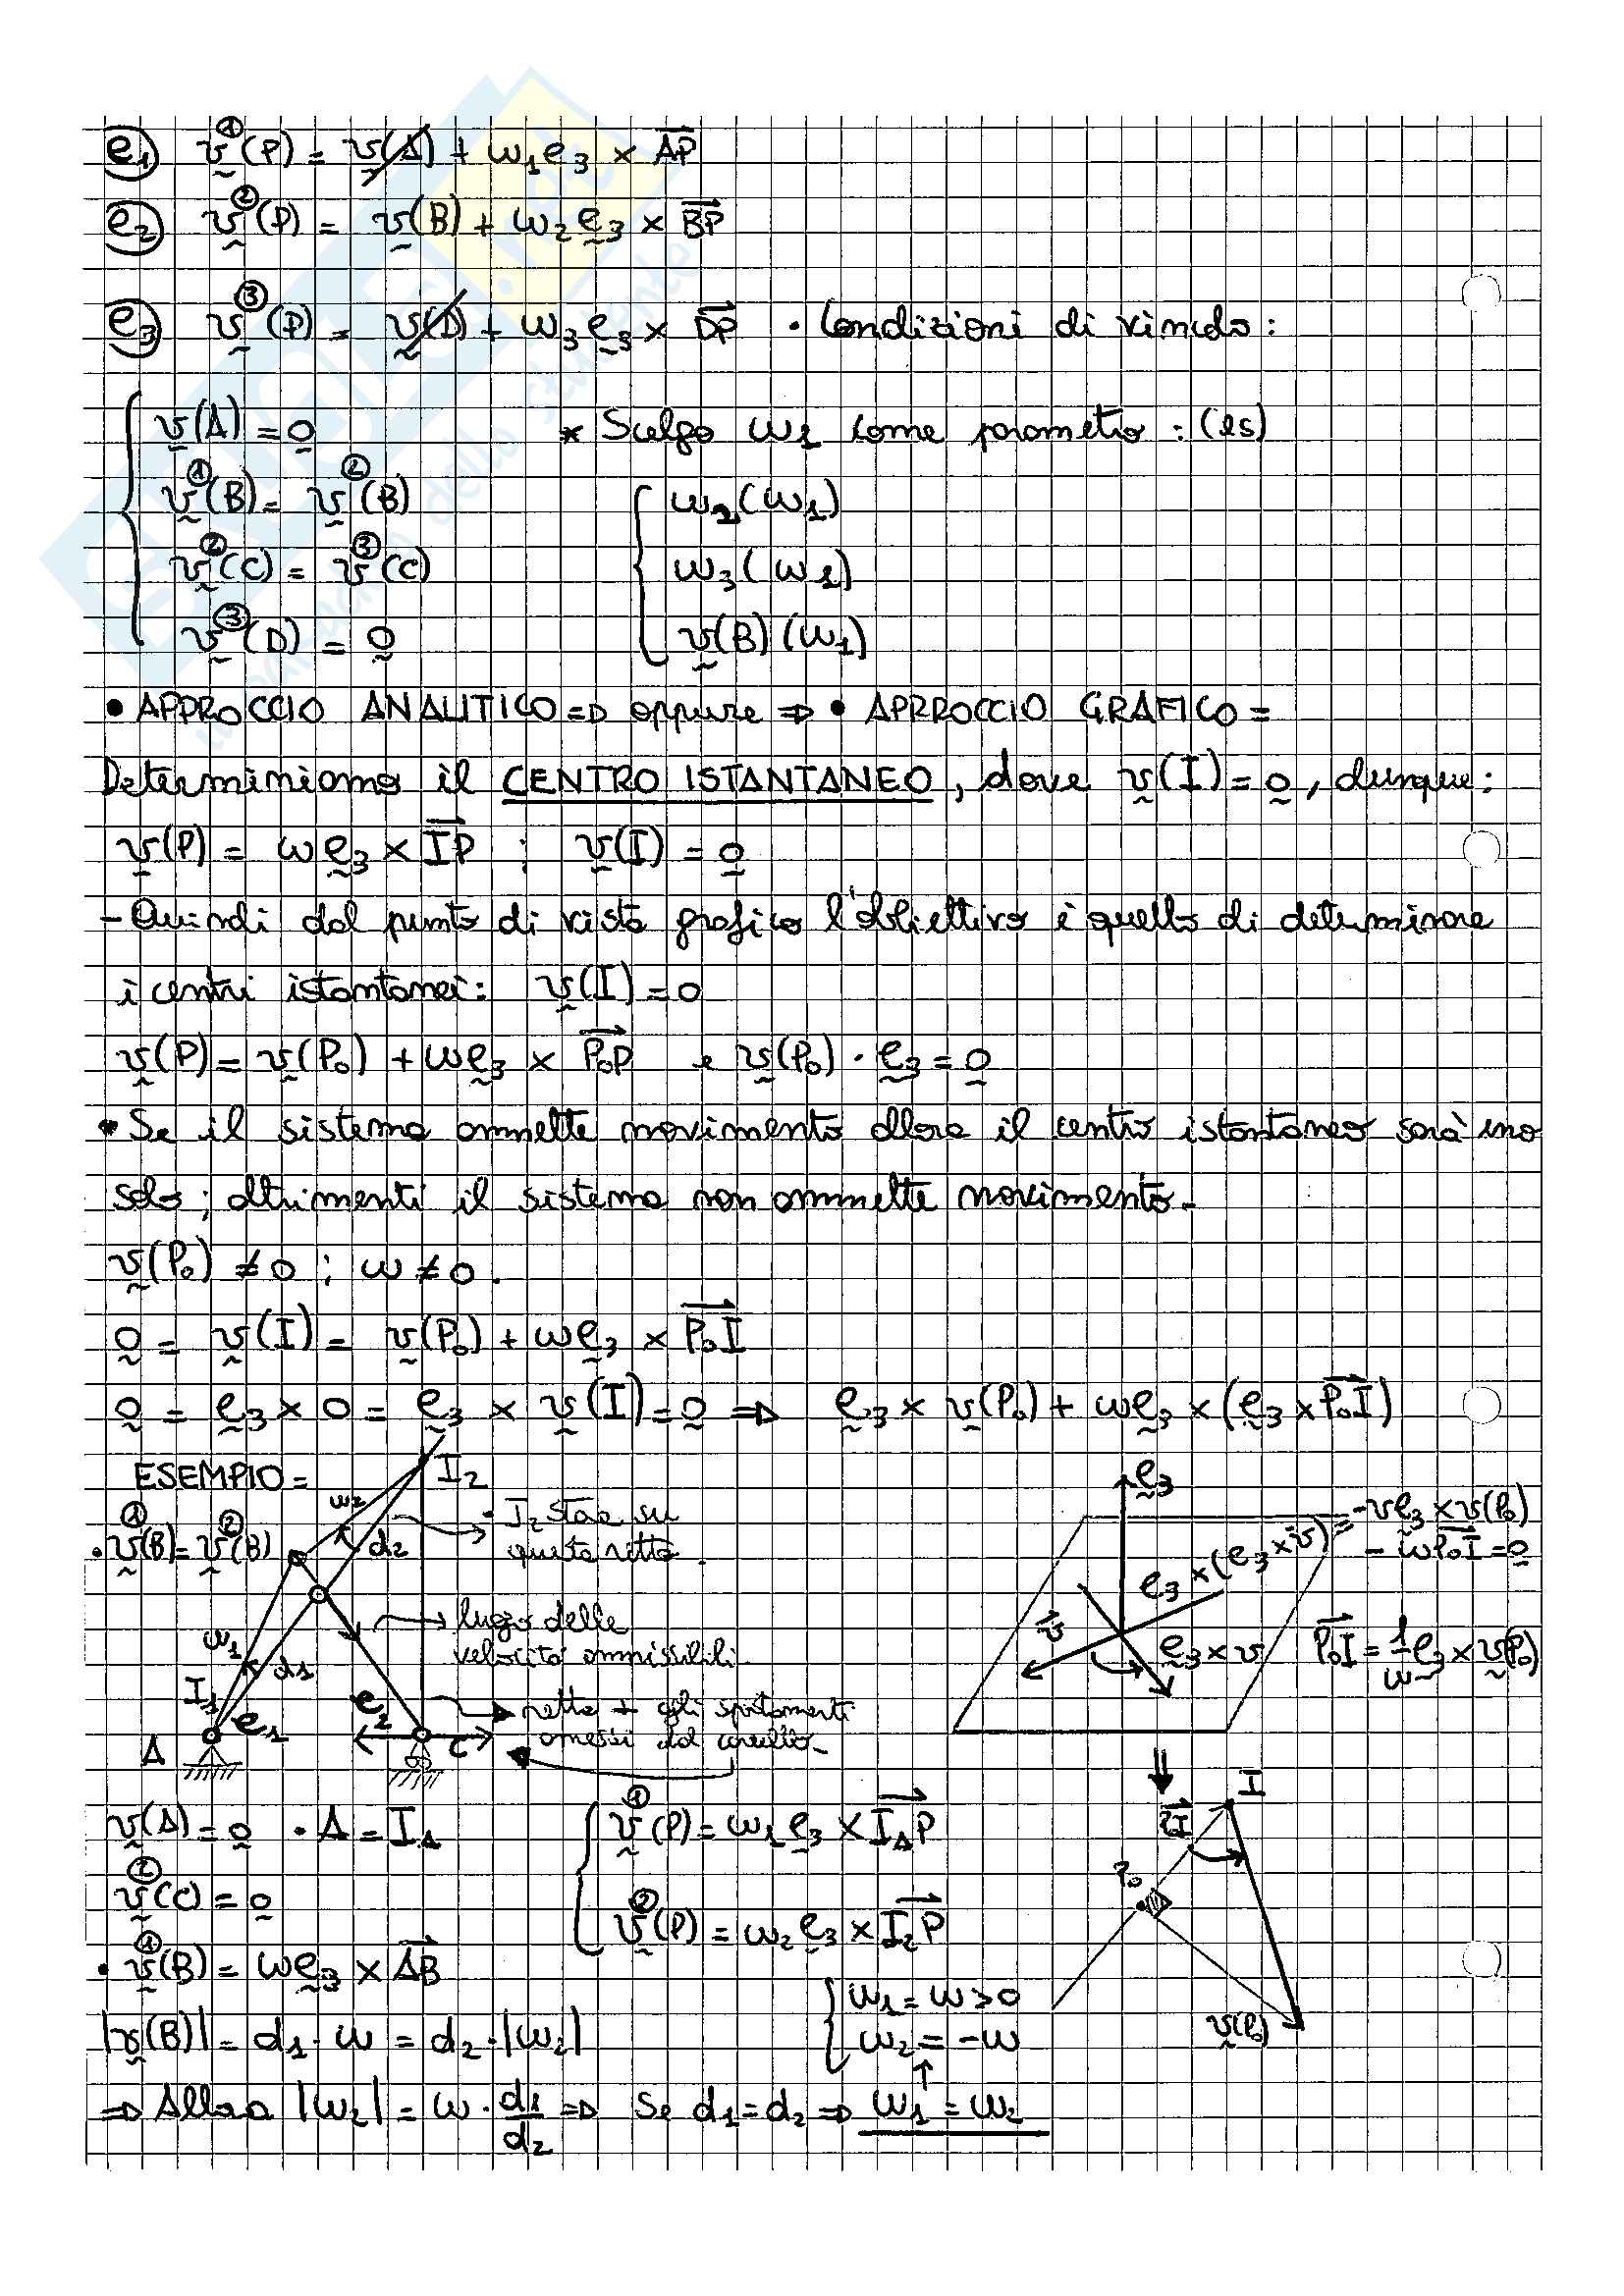 e1 v①(P) = v(A) + ω1 e3 × AP
e2 v②(P) = v(B) + ω2 e3 × BP
e3 v③(P) = v(D) + ω3 e3 × DP • Condizioni di vincolo:
v(A) = 0 * Scelgo ω1 come parametro : (es)
v①(B) = v②(B) ω2(ω1)
v②(C) = v③(C) ω3(ω1)
v③(D) = 0 v(B)(ω1)
• APPROCCIO ANALITICO ⇒ oppure ⇒ • APPROCCIO GRAFICO =
Determiniamo il CENTRO ISTANTANEO, dove v(I) = 0, dunque:
v(P) = ω e3 × IP ; v(I) = 0
- Quindi dal punto di vista grafico l'obliettivo è quello di determinare
i centri istantanei: v(I) = 0
v(P) = v(P0) + ω e3 × P0P e v(P0) · e3 = 0
* Se il sistema ammette movimento allora il centro istantaneo sarà uno
solo; altrimenti il sistema non ammette movimento.
v(P0) ≠ 0 ; ω ≠ 0.
0 = v(I) = v(P0) + ω e3 × P0I
0 = e3 × 0 = e3 × v(I) = 0 ⇒ e3 × v(P0) + ω e3 × (e3 × P0I)
ESEMPIO =
I2
• v①(B) = v②(B)
ω2
d2
- I2 sta su
questa retta.
luogo delle
velocità ammissibili.
ω1
d1
I1
e1
e2
A
C
retta ⊥ agli spostamenti
omessi dal carrello.
e3
e3 × (e3 × v) = - v e3 × v(P0)
- ω P0I = 0
v
e3 × v
P0I = 1/ω e3 × v(P0)
v(A) = 0 • A = I1
v①(P) = ω1 e3 × I1P
v②(C) = 0
v②(P) = ω2 e3 × I2P
I
P0
v(P0)
• v①(B) = ω e3 × AB
ω1 = ω > 0
|v(B)| = d1 · ω = d2 · |ω2| ω2 = -ω
⇒ Allora |ω2| = ω · d1/d2 ⇒ Se d1 = d2 ⇒ ω1 = ω2